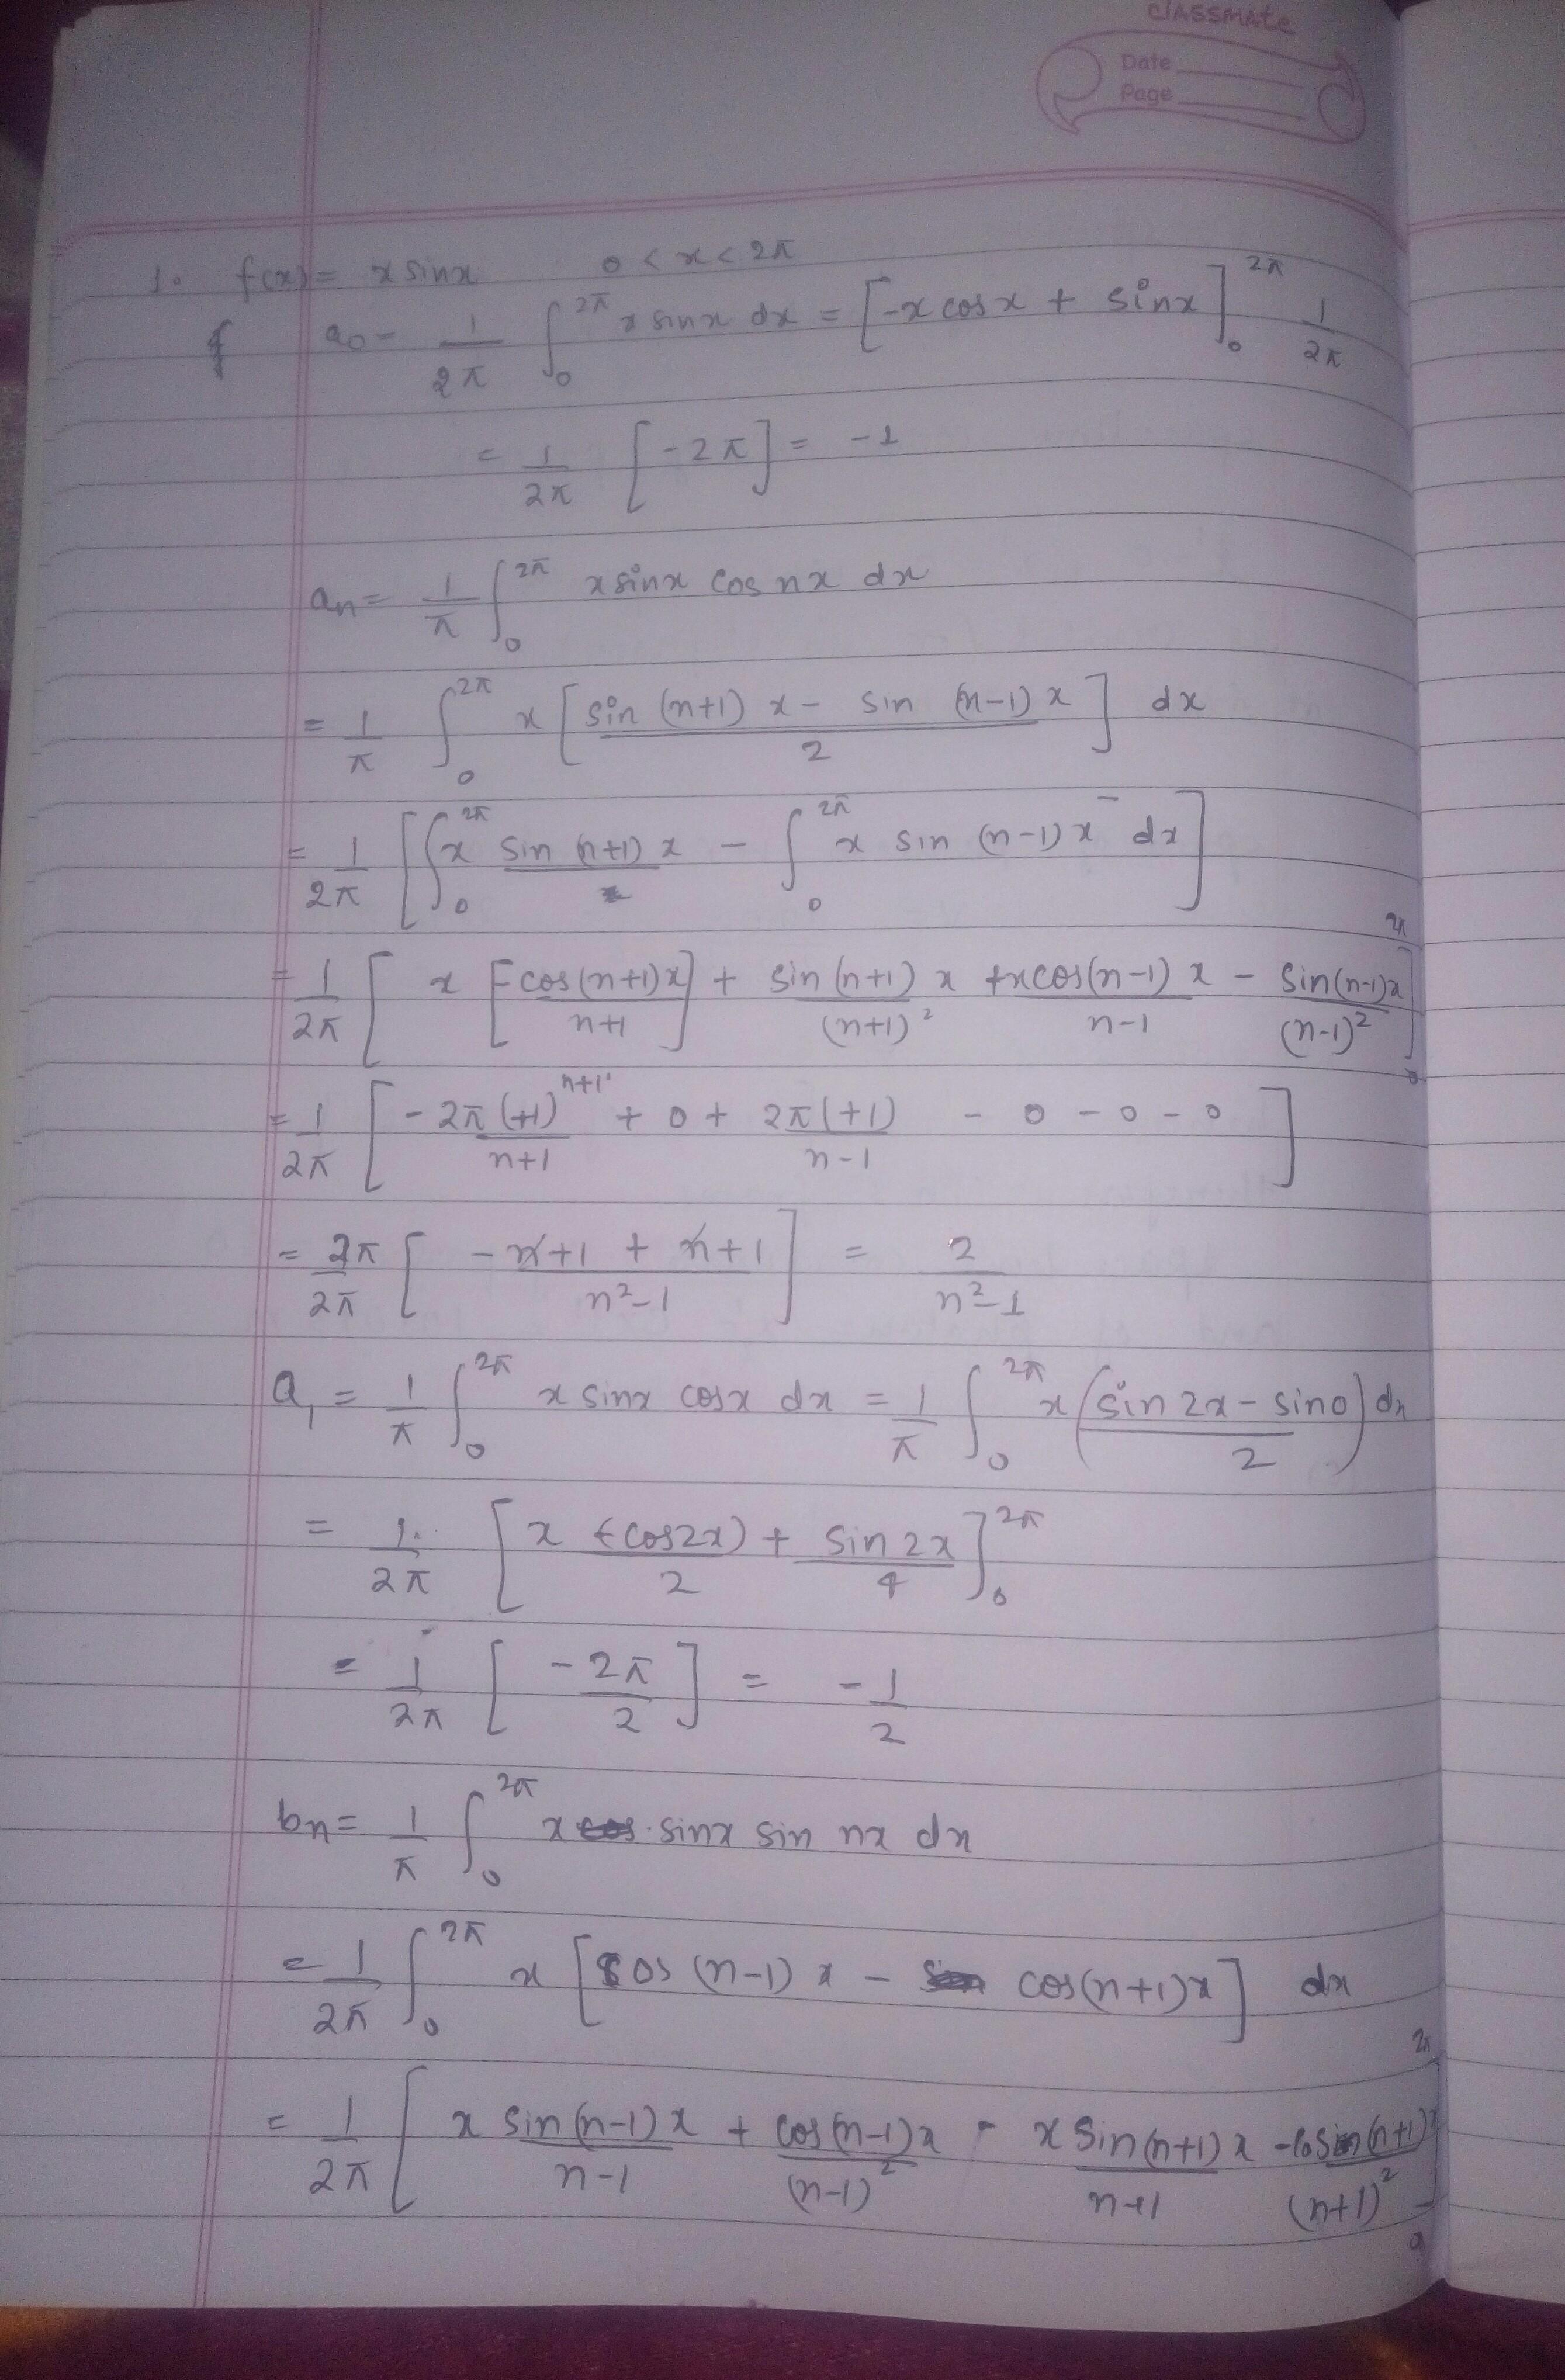 classmate
Date
Page
1. f(x) = x sinx 0 < x < 2π
a0 = 1/2π ∫_0^2π x sinx dx = [-x cosx + sinx]_0^2π 1/2π
= 1/2π [-2π] = -1
an = 1/π ∫_0^2π x sinx cos nx dx
= 1/π ∫_0^2π x [sin (n+1) x - sin (n-1) x / 2] dx
= 1/2π [∫_0^2π x sin (n+1) x - ∫_0^2π x sin (n-1) x dx]
= 1/2π [x [-cos(n+1)x / n+1] + sin (n+1) x / (n+1)^2 + x cos(n-1) x / n-1 - sin(n-1)x / (n-1)^2]_0^2π
= 1/2π [-2π (+1)^n+1 / n+1 + 0 + 2π(+1) / n-1 - 0 - 0 - 0]
= 2π/2π [-n+1 + n+1 / n²-1] = 2 / n²-1
a1 = 1/π ∫_0^2π x sinx cosx dx = 1/π ∫_0^2π x (sin 2x - sin0 / 2) dx
= 1/2π [x (-cos2x) / 2 + sin 2x / 4]_0^2π
= 1/2π [-2π / 2] = -1/2
bn = 1/π ∫_0^2π x sinx sin nx dx
= 1/2π ∫_0^2π x [cos (n-1) x - cos(n+1)x] dx
= 1/2π [x sin(n-1) x / n-1 + cos(n-1)x / (n-1)^2 - x sin(n+1) x / n+1 - cos(n+1)x / (n+1)^2]_0^2π